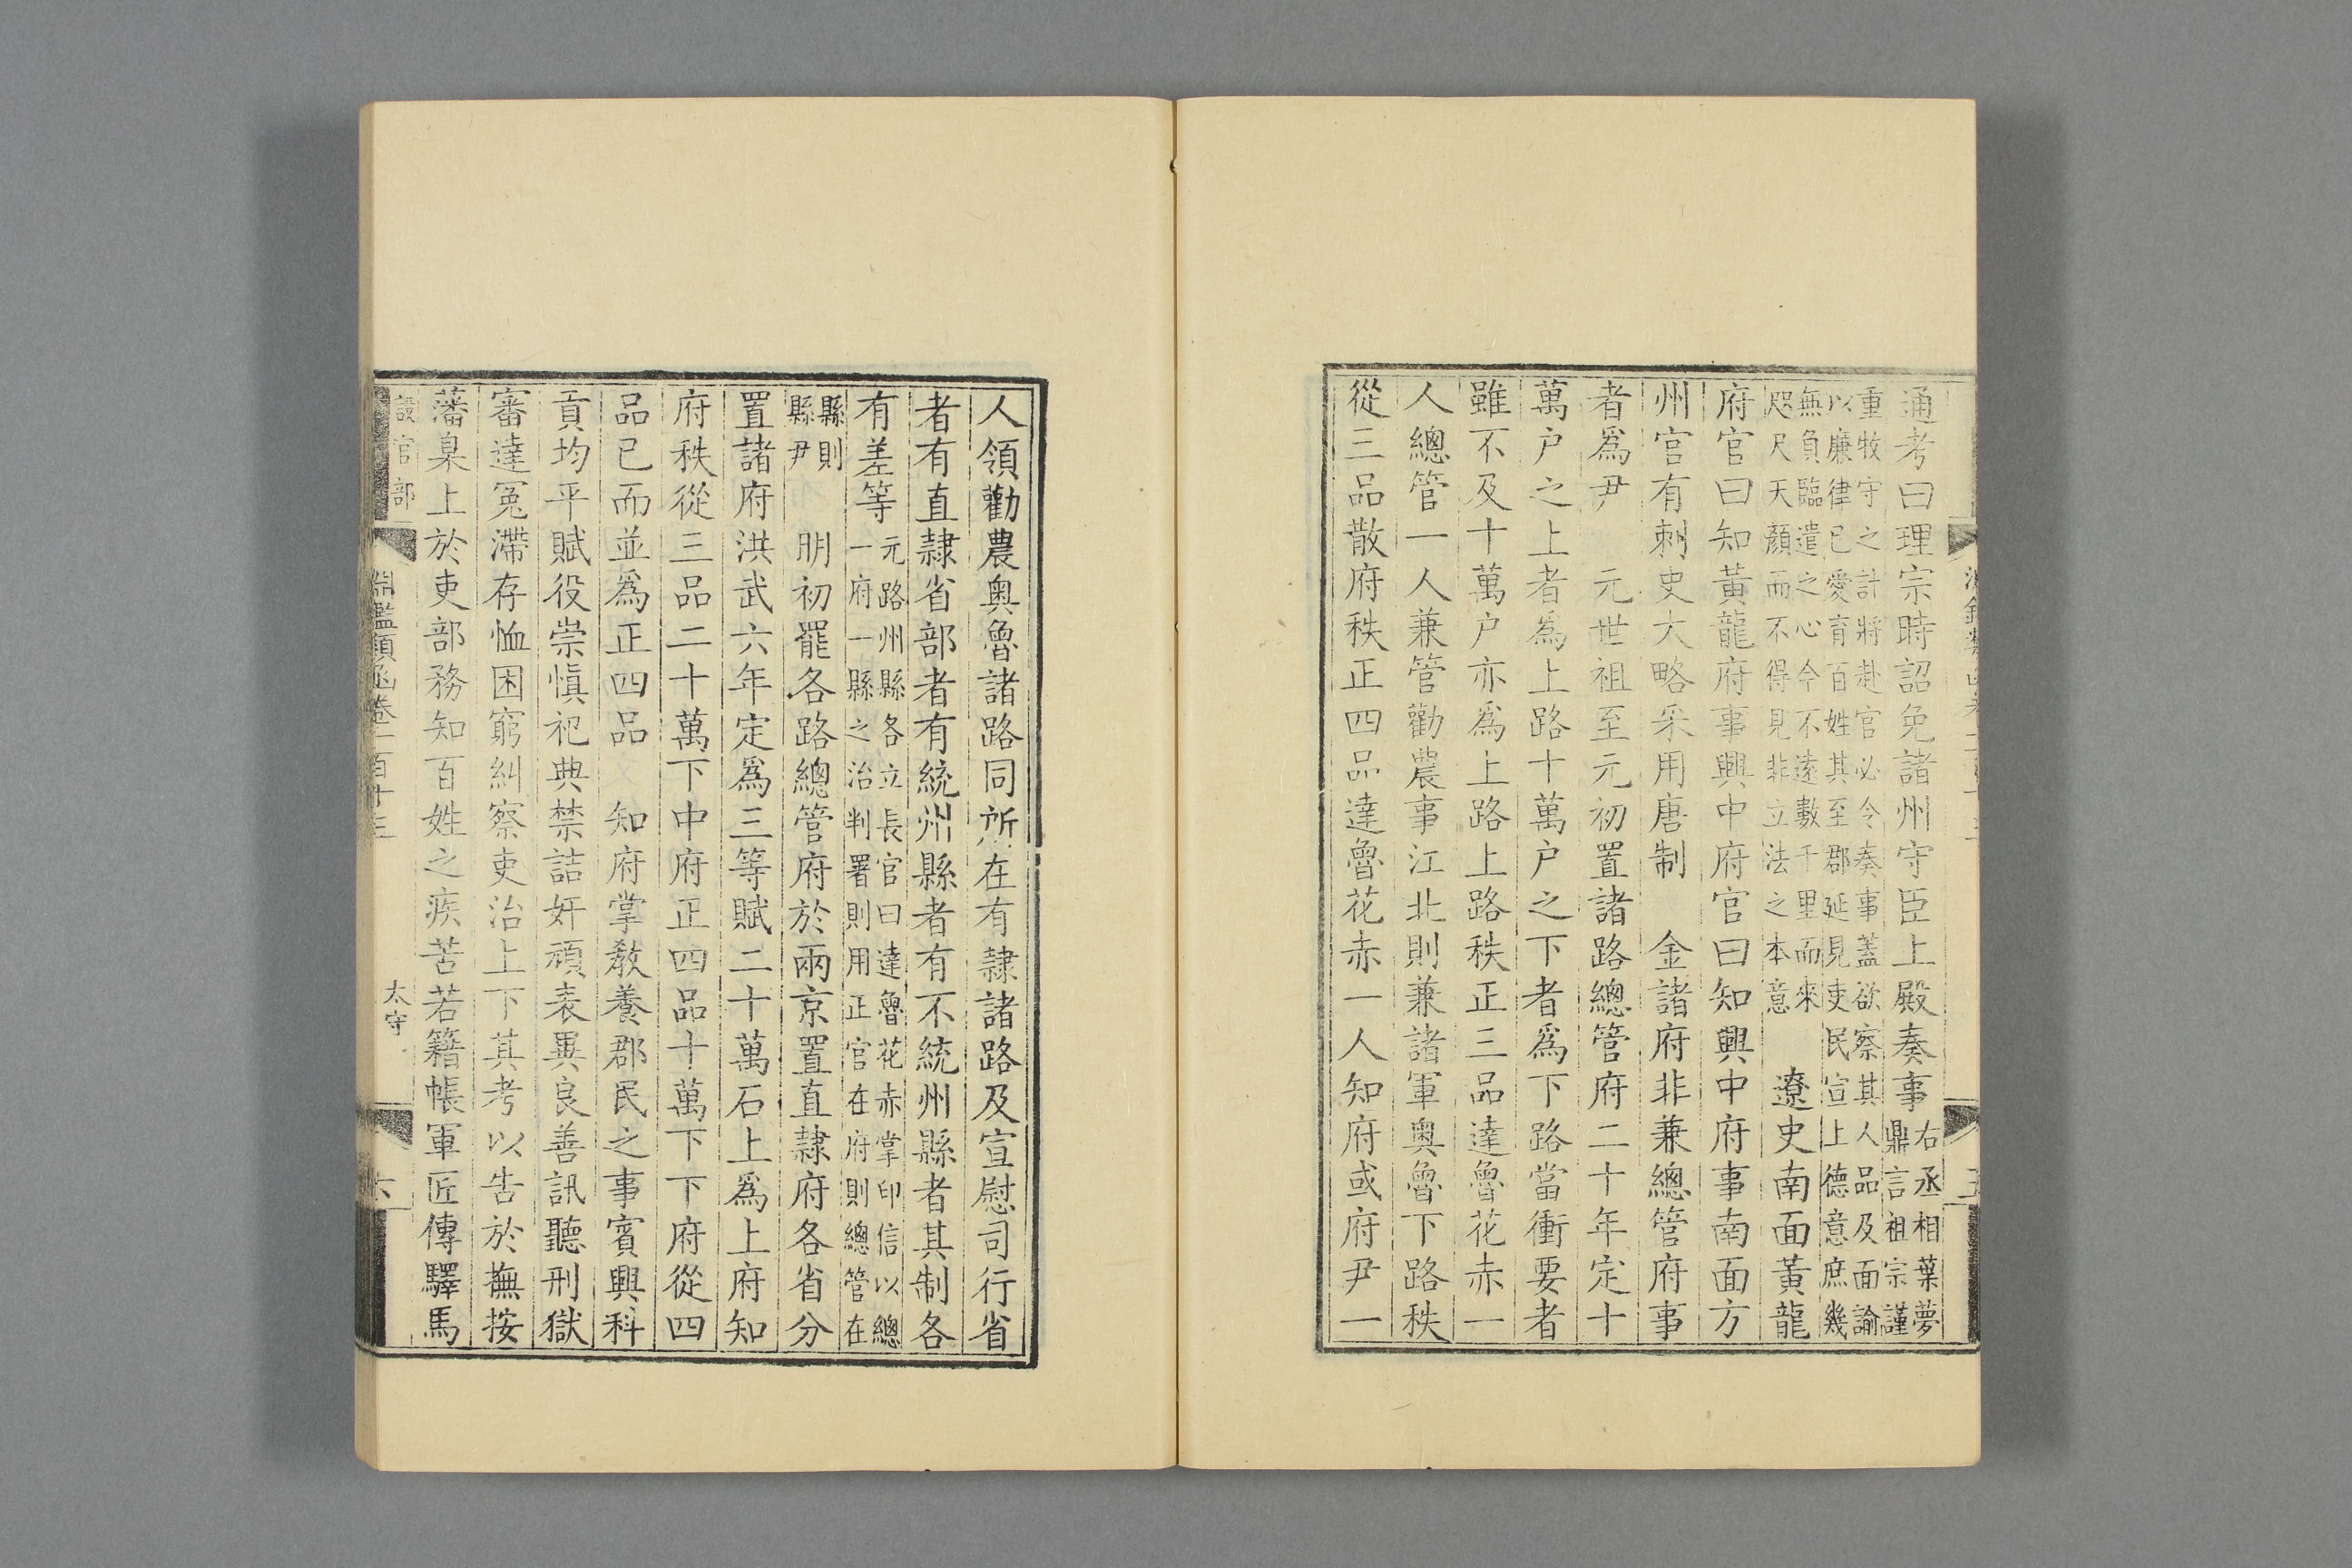 通考曰理宗時詔免諸州守臣上殿奏事右丞相葉夢鼎言祖宗謹
重牧守之計將赴官必令奏事蓋欲察其人品及面諭
以廉律己愛育百姓其至郡延見吏民宣上德意庶幾
無負臨遣之心今不遠數千里而來
咫尺天顏而不得見非立法之本意
遼史南面黃龍
府官曰知黃龍府事興中府官曰知興中府事南面方
州官有刺史大略采用唐制　金諸府非兼總管府事
者爲尹　元世祖至元初置諸路總管府二十年定十
萬戶之上者爲上路十萬戶之下者爲下路當衝要者
雖不及十萬戶亦爲上路上路秩正三品達魯花赤一
人總管一人兼管勸農事江北則兼諸軍奧魯下路秩
從三品散府秩正四品達魯花赤一人知府或府尹一
人領勸農奧魯諸路同所在有隷諸路及宣慰司行省
者有直隷省部者有統州縣者有不統州縣者其制各
有差等
元路州縣各立長官曰達魯花赤掌印信以總
一府一縣之治判署則用正官在府則總管在
縣則
縣尹
明初罷各路總管府於兩京置直隷府各省分
置諸府洪武六年定爲三等賦二十萬石上爲上府知
府秩從三品二十萬下中府正四品十萬下下府從四
品已而並爲正四品　知府掌敎養郡民之事賓興科
貢均平賦役崇愼祀典禁詰奸頑表異良善訊聽刑獄
審達冤滯存恤困窮糾察吏治上下其考以告於撫按
藩臬上於吏部務知百姓之疾苦若籍帳軍匠傳驛馬
設官部
淵鑑類函卷一百十三
太守
六